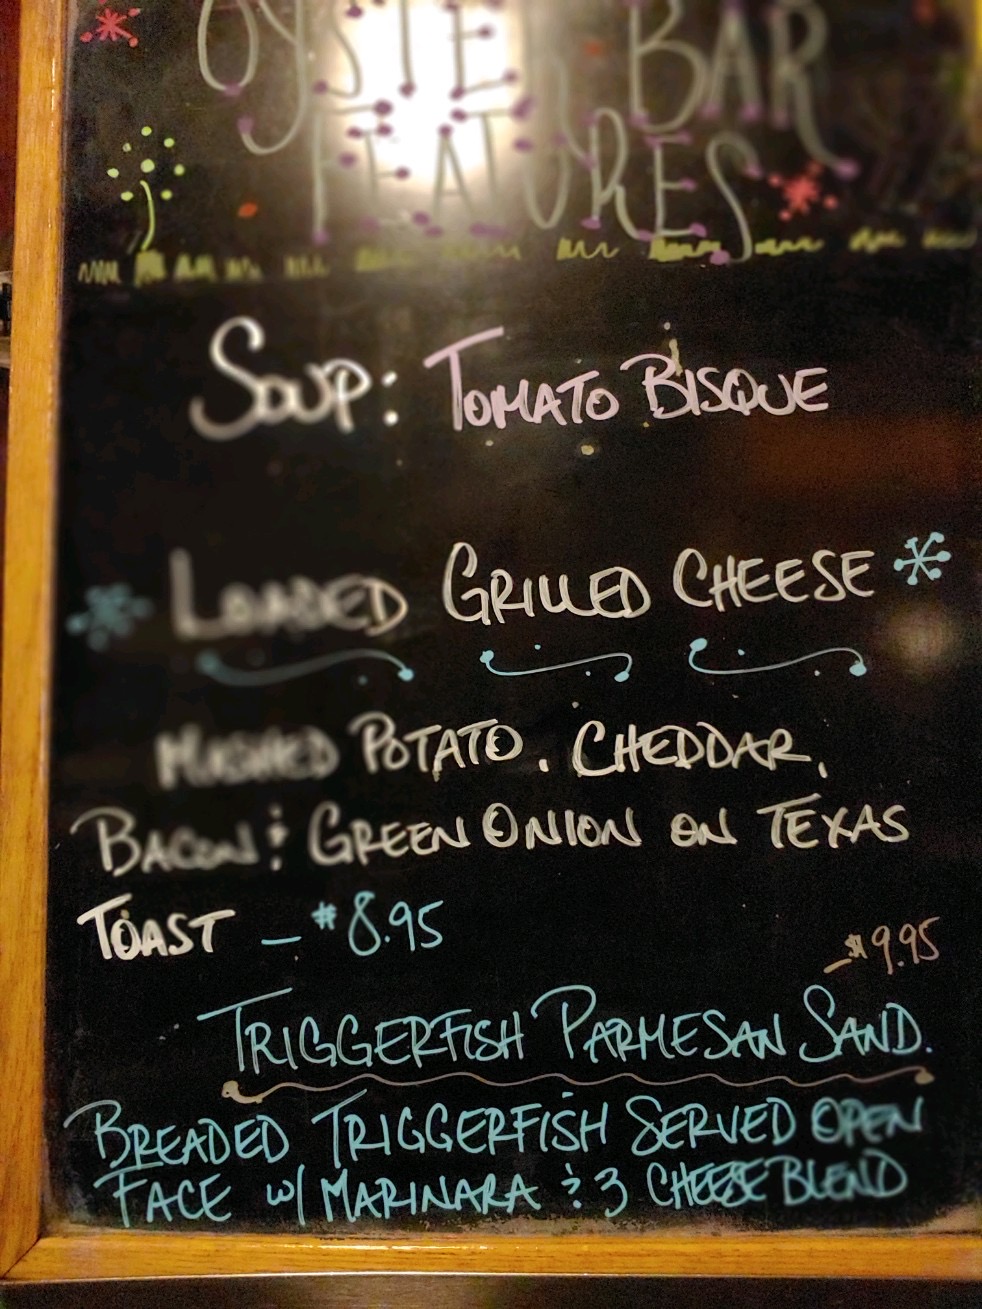 OYSTER BAR
FEATURES
SOUP: TOMATO BISQUE
LOADED GRILLED CHEESE
MASHED POTATO, CHEDDAR,
BACON & GREEN ONION ON TEXAS
TOAST - $8.95
- $9.95
TRIGGERFISH PARMESAN SAND.
BREADED TRIGGERFISH SERVED OPEN
FACE W/ MARINARA & 3 CHEESE BLEND